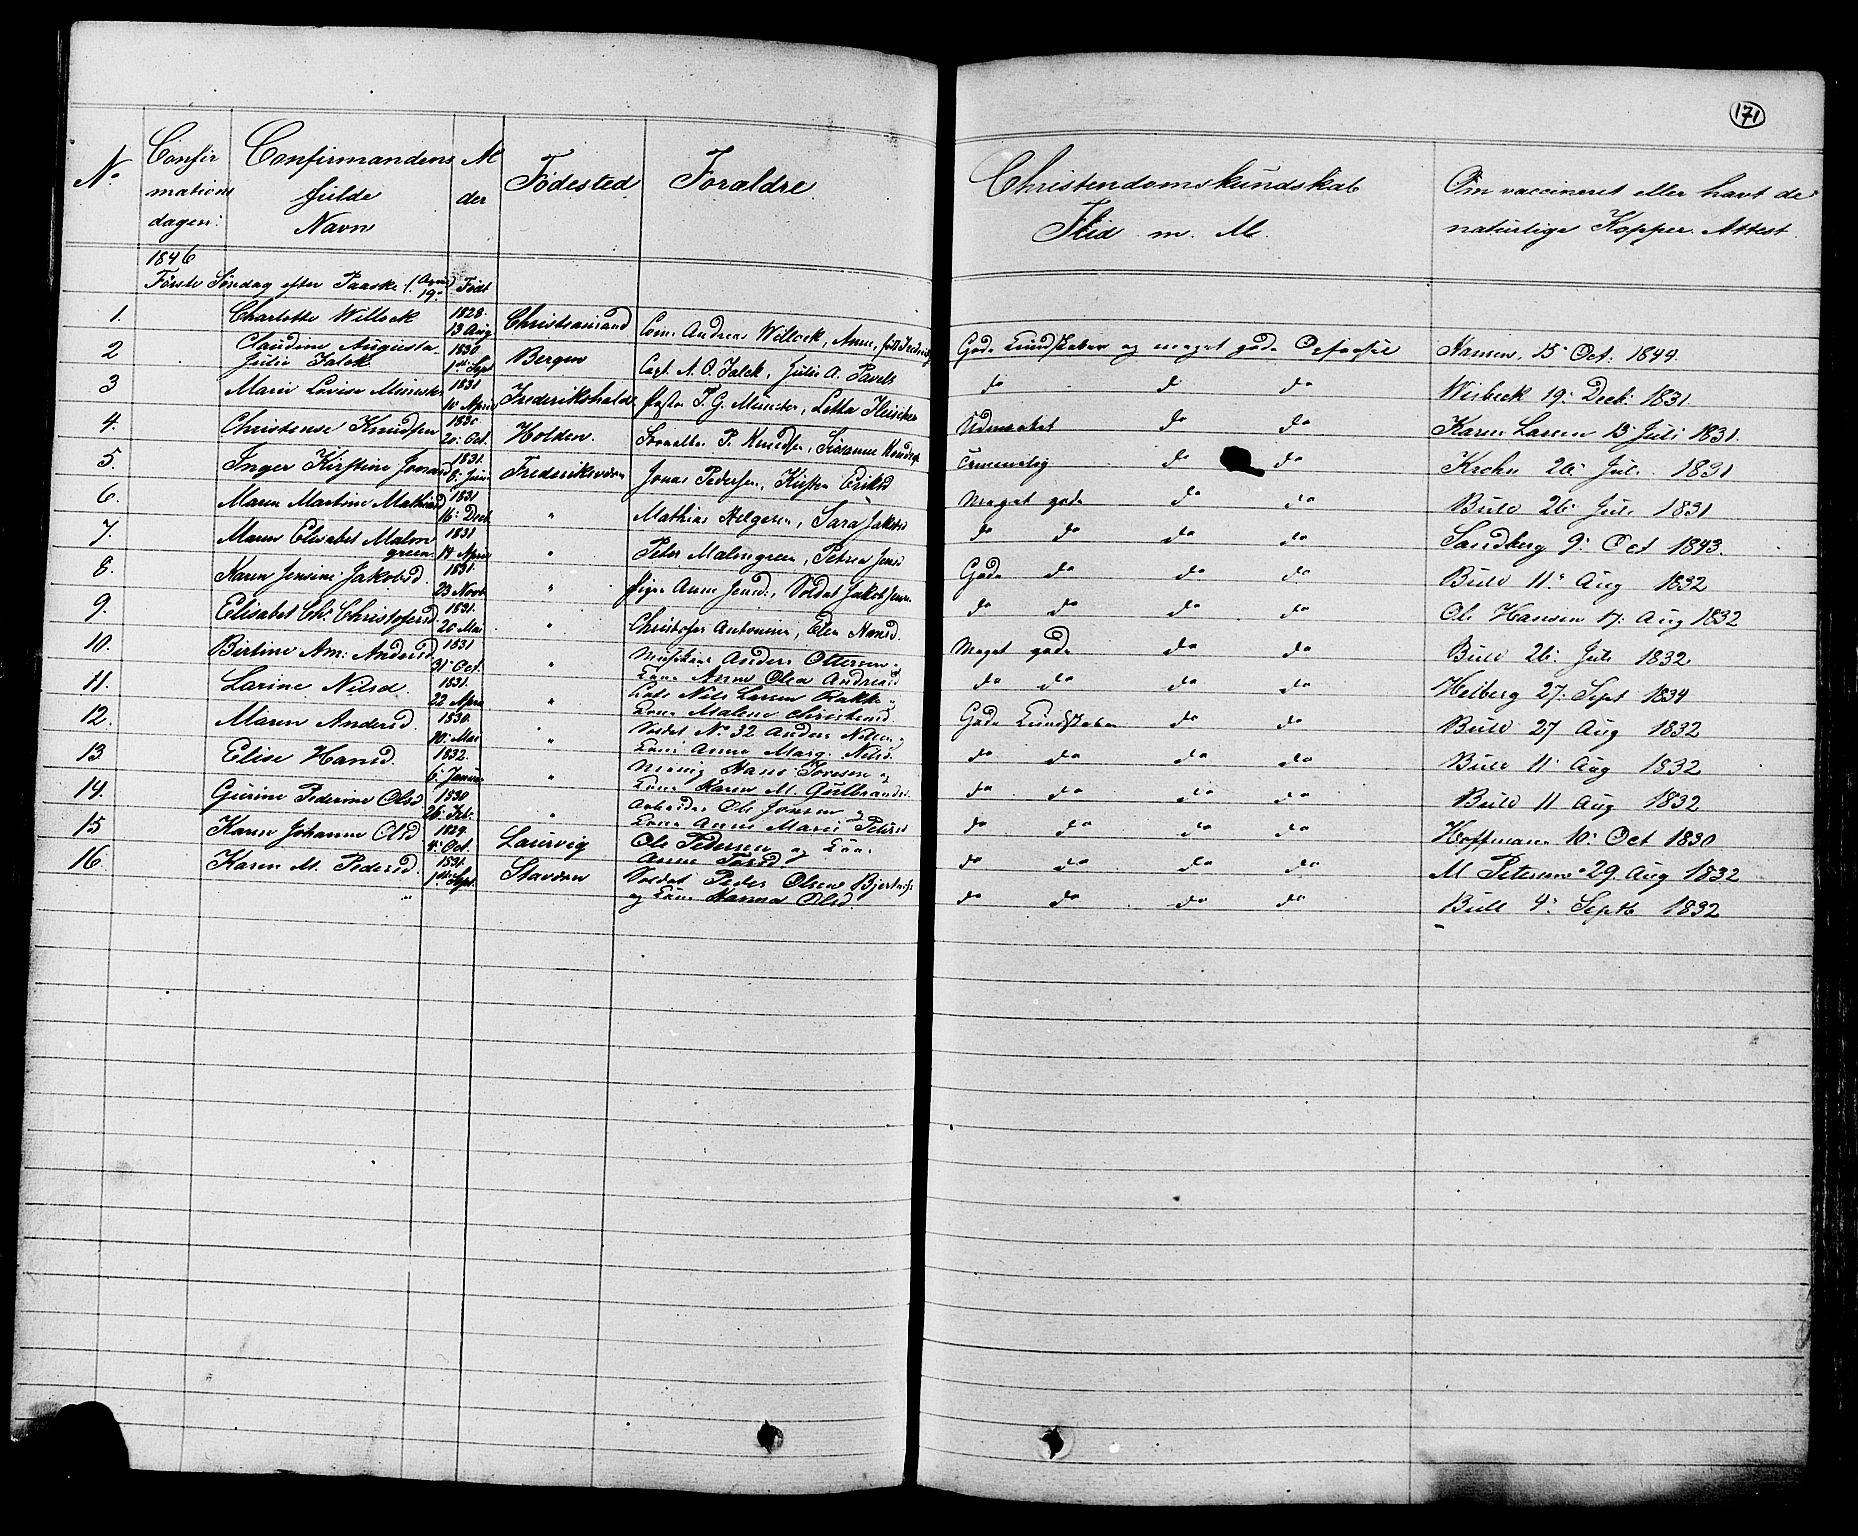 171
No Confirmationsdagen: Confirmandens fulde Navn Alder Födested Foraldre Christendomskundskab Flid m. M. Om vaccineret eller havt de naturlige Kopper. Attest.
1846
Förste Söndag efter Paaske (April 19: Födt
1. Charlotte Willock 1828. 13 Aug. Christiansand Andreas Willock, Anne, Gode Kundskaber og meget gode Hansen, 15 Oct. 1844.
2 Claudine Augusta Julie Falck 1830 1ste Sept Bergen Capt. A. O. Falck, Julie A. Pavels do do do Wisbeck 19: Decb: 1831
3 Marie Lovise Münster 1831 10 April Frederikshald P. G. Münster, Letta Fleischer Udmærket do do Karen Larsen 13 Juli 1831.
4. Christense Knudsen 1830 20: Oct. Holden. P. Knudsen, Susanne do do Krohn 26 Juli 1831
5. Inger Kirstine Jonasd 1831. 8: Juni Frederiksværn Jonas Pedersen, Kirsten Eriksd Meget gode do do Buld 26 Juli 1831
6. Maren Martine Mathiasd 1831 16: Decb " Mathias Helgesen, Sara Jakobsd do do do do Sandberg 9: Oct 1843.
7. Maren Elisabet Malmgreen 1831 14 April " Peter Malmgreen, Petrea Jensd Gode do do do Buld 11: Aug 1832
8. Karen Jensine Jakobsd. 1831. 23 Novb " Pige Anne Jensd:, Soldat Jakob Jensen do do do do Ole Hansen 17: Aug 1832
9. Elisabet Ch: Christofersd 1831. 20 Mai " Christofer Antonsen, Elen Hansd. Meget gode do do Buld 26: Juli 1832
10. Birtine Am: Andersd 1831 31: Oct. " Anders Ottersen Kone Anne Olea Andreasd do do do do Heiberg 27: Sept 1834
11. Larine Nilsd. 1831. 22 April " Nils Larsen Bakke Kone Malene Christensd Gode Kundskaber do do Buld 27 Aug 1832
12. Maren Andersd. 1830. 10: Mai " Soldat No 32 Anders Nilsen Kone Anne Marg: Nilsd. do do do do Buld 11: Aug 1832
13 Elise Hansd. 1832. 6: Januar " Hans Toresen og Kone Karen M. Gulbrandsd. do do do do Buld 11 Aug 1832
14. Gurine Pederine Olsd 1830 26: Feb: " Arbeider Ole Jonsen og Kone Anne Marie Petersd do do do do Hoffmann 10: Oct 1830
15 Karen Johanne Olsd 1829. 4: Oct. Laurvig Ole Pedersen og Kone Anne Torsd do do do do M Petersen 29. Aug 1832
16. Karen M. Pedersd. 1831. 1ste Sept. Staværn Soldat Peder Olsen og Kone Hanna Olsd do do do do Bull 4: Septb 1832